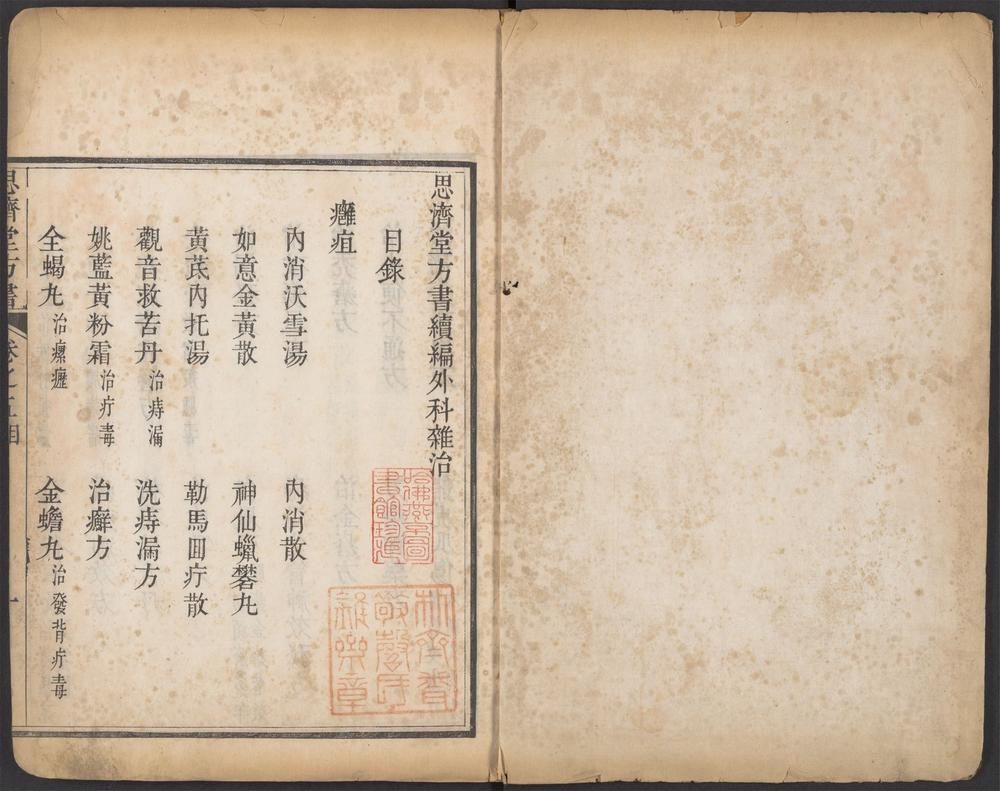 思濟堂方書續編外科雜治
目錄
癰疽
內消沃雪湯 內消散
如意金黃散 神仙蠟礬丸
黃芪內托湯 勒馬回疔散
觀音救苦丹治痔漏 洗痔漏方
姚藍黃粉霜治疔毒 治癬方
全蝎丸治瘰癧 金蟾丸治發背疔毒
思濟堂方書 卷之五 目 一
哈佛燕京圖書館珍藏